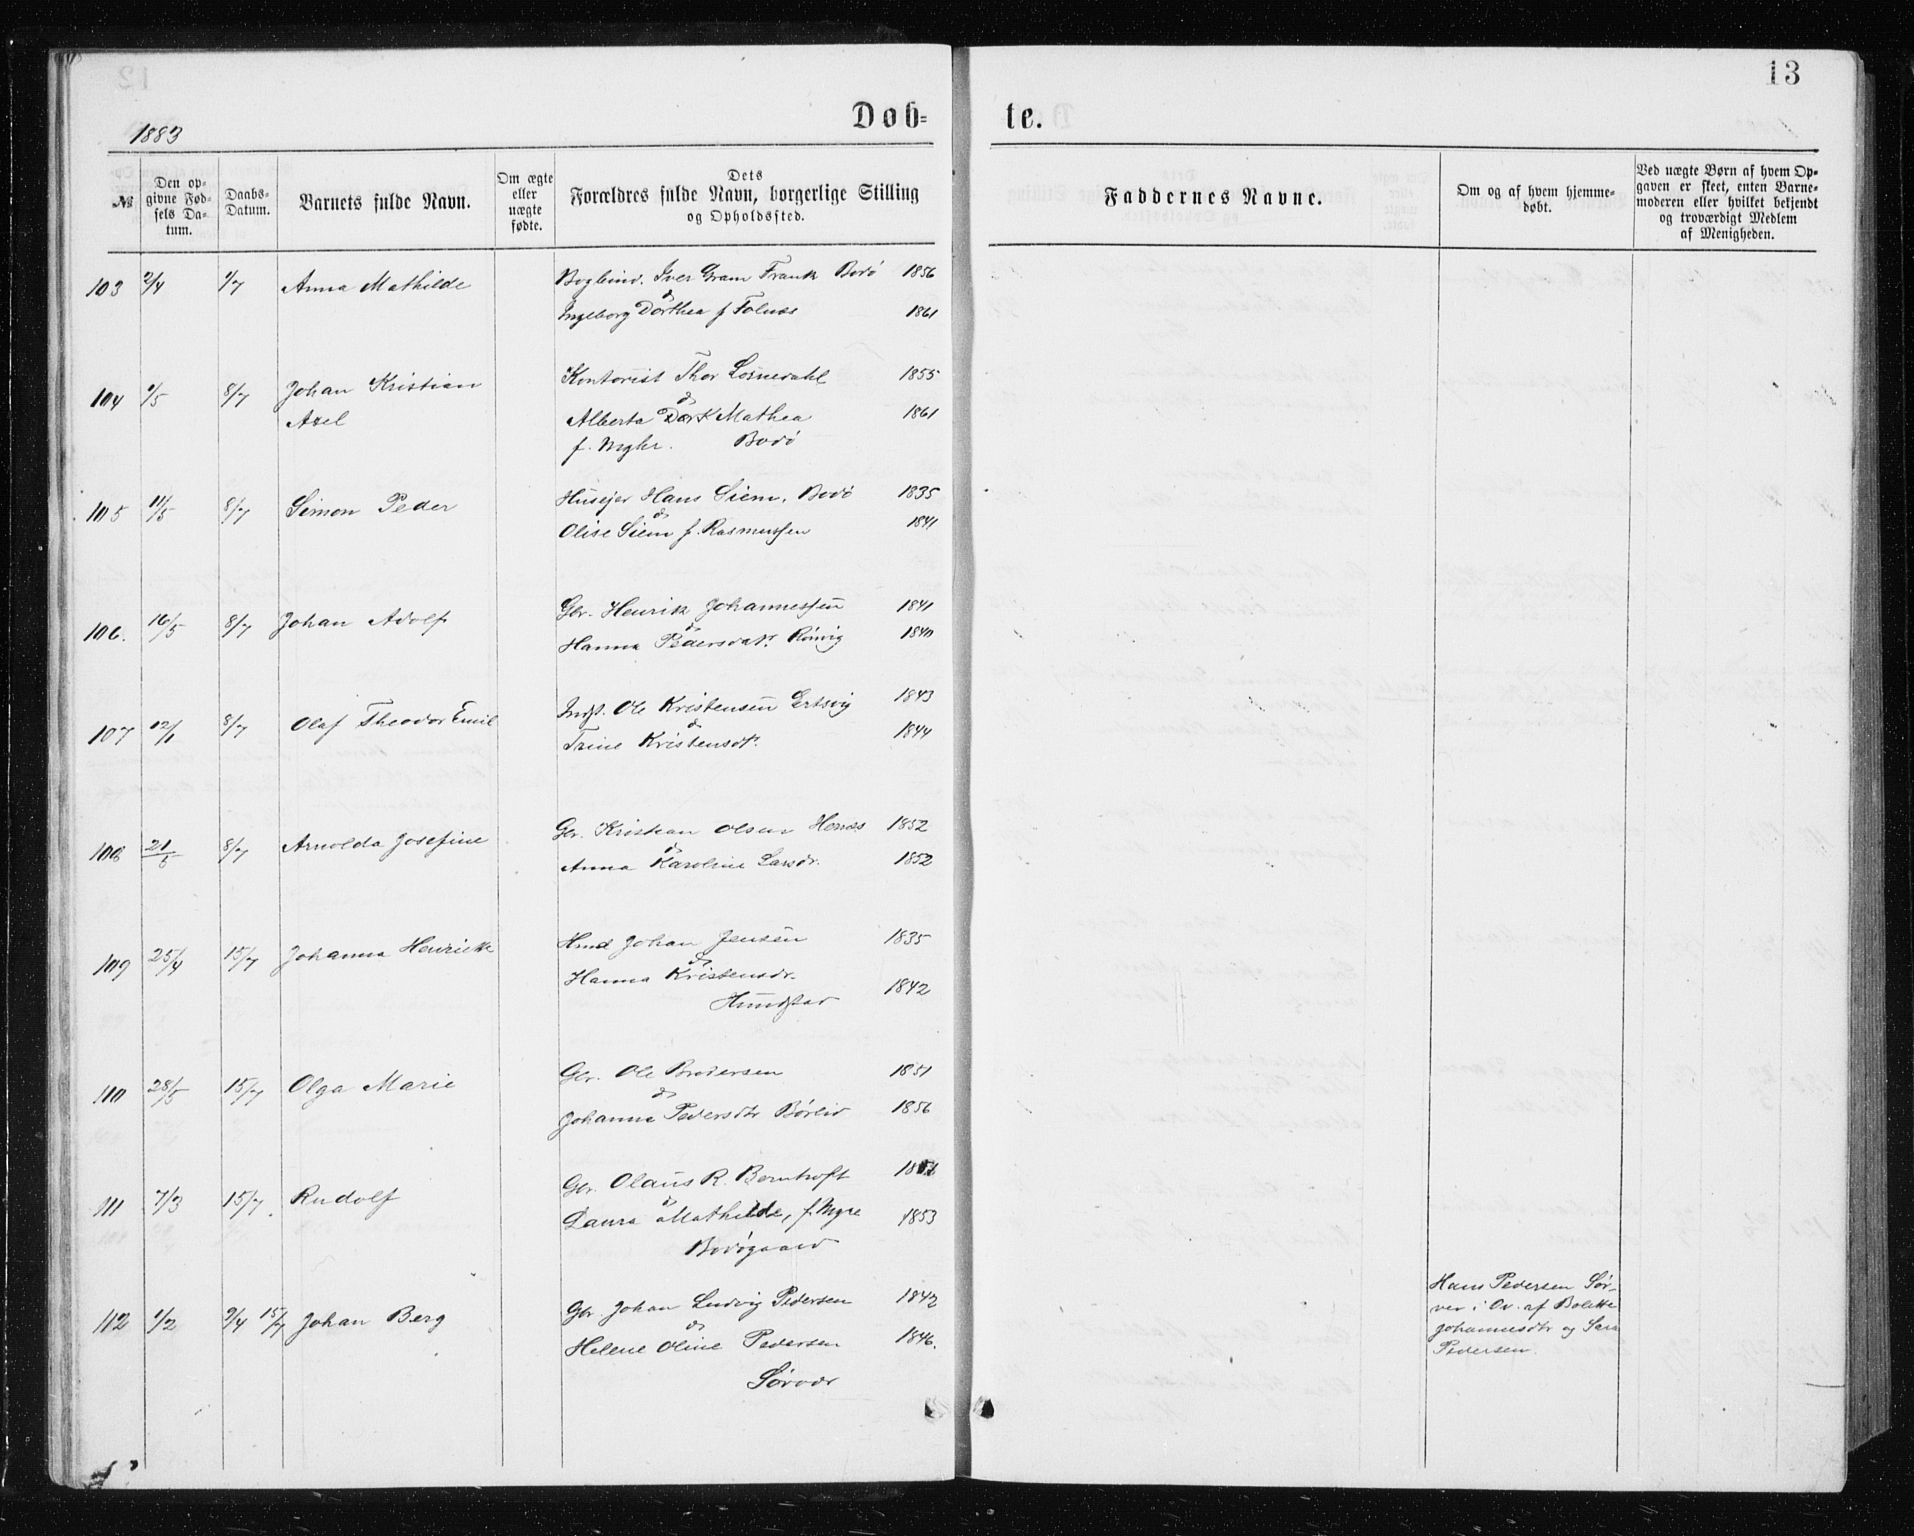 13
1883
Døb=
te.
№
Den op-
givne Fød-
sels Da-
tum.
Daabs-
Datum.
Barnets fulde Navn.
Om ægte
eller
uægte
fødte.
Dets
Forældres fulde Navn, borgerlige Stilling
og Opholdssted.
Faddernes Navne.
Om og af hvem hjemme-
døbt.
Ved uægte Børn af hvem Op-
gaven er skeet, enten Barne-
moderen eller hvilket bekjendt
og troværdigt Medlem
af Menigheden.
103 2/4 1/7 Anna Mathilde
Bogbind. Iver Gram Frank Bodø 1856
&
Ingeborg Dorthea f. Folnæs 1861
104 1/5 8/7 Johan Kristian
Axel
Kontorist Thor 1855
&
Alberta Mathea 1861
f. Bodø
105 11/5 8/7 Simon Peder
Husejer Hans Siem, Bodø 1835
&
Olise Siem f. Rasmussen 1841
106. 16/5 8/7 Johan Adolf
Gbr. Henrik Johannessen 1841
&
Hanna Pedersdatr. Rønvig 1840
107 12/1 8/7 Olaf Theodor Emil
Indst. Ole Kristensen Ertsvig 1843
&
Trine Kristensdtr. 1844
108 21/5 8/7 Arnolda Josefine
Gbr. Kristian Olsen Hernæs 1852
&
Anna Karoline Larsdr. 1852
109 25/4 15/7 Johanna Henriette
Hmd Johan Jensen 1835
&
Hanna Kristensdr. 1842
Hundstad
110 28/5 15/7 Olga Marie
Gbr. Ole Brodersen 1851
&
Johanna Pedersdtr Børlid 1856
111 7/3 15/7. Rudolf
Gbr. Olaus R. Berntzoft
&
Laura Mathilde, f. Myre 1853
Bodøgaard
112 1/2 2/4 15/7 Johan Berg
Gbr Johan Ludvig Pedersen 1842
&
Helene Oline Pedersen 1846.
Sørvær
Hans Pedersen Sør-
vær i Ov. af Bolette
Johannesdtr og Sara
Pedersen.